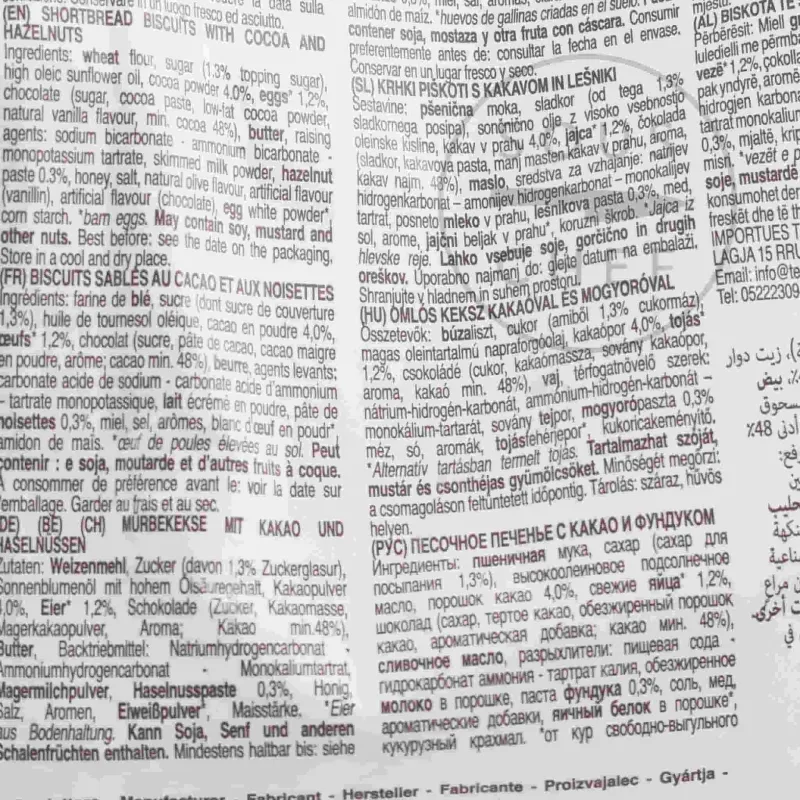 (EN) SHORTBREAD BISCUITS WITH COCOA AND
HAZELNUTS
Ingredients: wheat flour, sugar (1.3% topping sugar),
high oleic sunflower oil, cocoa powder 4.0%, eggs* 1,2%,
chocolate (sugar, cocoa paste, low-fat cocoa powder,
natural vanilla flavour, min. cocoa 48%), butter, raising
agents: sodium bicarbonate - ammonium bicarbonate -
monopotassium tartrate, skimmed milk powder, hazelnut
paste 0.3%, honey, salt, natural olive flavour, artificial flavour
(vanillin), artificial flavour (chocolate), egg white powder*,
corn starch. *barn eggs. May contain soy, mustard and
other nuts. Best before: see the date on the packaging.
Store in a cool and dry place.
(FR) BISCUITS SABLÉS AU CACAO ET AUX NOISETTES
Ingrédients: farine de blé, sucre (dont sucre de couverture
1,3%), huile de tournesol oléique, cacao en poudre 4,0%,
œufs* 1,2%, chocolat (sucre, pâte de cacao, cacao maigre
en poudre, arôme; cacao min. 48%), beurre, agents levants:
carbonate acide de sodium - carbonate acide d'ammonium
- tartrate monopotassique, lait écrémé en poudre, pâte de
noisettes 0,3%, miel, sel, arômes, blanc d'œuf en poudr*
amidon de mais. *œuf de poules élevées au sol. Peut
contenir : e soja, moutarde et d'autres fruits à coque.
A consommer de préférence avant le: voir la date sur
l'emballage. Garder au frais et au sec.
(DE) (BE) (CH) MÜRBEKEKSE MIT KAKAO UND
HASELNÜSSEN
Zutaten: Weizenmehl, Zucker (davon 1,3% Zuckerglasur),
Sonnenblumenöl mit hohem Ölsäuregehalt, Kakaopulver
4,0%, Eier* 1,2%, Schokolade (Zucker, Kakaomasse,
Magerkakaopulver, Aroma; Kakao min.48%),
Butter, Backtriebmittel: Natriumhydrogencarbonat -
Ammoniumhydrogencarbonat - Monokaliumtartrat,
Magermilchpulver, Haselnusspaste 0,3%, Honig,
Salz, Aromen, Eiweißpulver*, Maisstärke. *Eier
aus Bodenhaltung. Kann Soja, Senf und anderen
Schalenfrüchten enthalten. Mindestens haltbar bis: siehe
almidón de maíz. *huevos de gallinas criadas en el suelo.
contener soja, mostaza y otra fruta con cáscara. Consumir
preferentemente antes de: consultar la fecha en el envase.
Conservar en un lugar fresco y seco.
(SL) KRHKI PIŠKOTI S KAKAVOM IN LEŠNIKI
Sestavine: pšenična moka, sladkor (od tega 1,3%
sladkornega posipa), sončnično olje z visoko vsebnostjo
oleinske kisline, kakav v prahu 4,0%, jajca* 1,2%, čokolada
(sladkor, kakavova pasta, manj masten kakav v prahu, aroma,
kakav najm. 48%), maslo, sredstva za vzhajanje: natrijev
hidrogenkarbonat – amonijev hidrogenkarbonat – monokalijev
tartrat, posneto mleko v prahu, lešnikova pasta 0,3%, med,
sol, arome, jajčni beljak v prahu*, koruzni škrob. *Jajca iz
hlevske reje. Lahko vsebuje soje, gorčično in drugih
oreškov. Uporabno najmanj do: glejte datum na embalaži.
Shranjujte v hladnem in suhem prostoru.
(HU) OMLÓS KEKSZ KAKAÓVAL ÉS MOGYORÓVAL
Összetevők: búzaliszt, cukor (amiből 1,3% cukormáz),
magas oleintartalmú napraforgóolaj, kakaópor 4,0%, tojás*
1,2%, csokoládé (cukor, kakaómassza, sovány kakaópor,
aroma, kakaó min. 48%), vaj, térfogatnövelő szerek:
nátrium-hidrogén-karbonát, ammónium-hidrogén-karbonát –
monokálium-tartarát, sovány tejpor, mogyorópaszta 0,3%
méz, só, aromák, tojásfehérjepor*, kukoricakeményítő,
*Alternatív tartásban termelt tojás. Tartalmazhat szóját,
mustár és csonthéjas gyümölcsöket. Minőségét megőrzi:
a csomagoláson feltüntetett időpontig. Tárolás: száraz, hűvös
helyen.
(РУС) ПЕСОЧНОЕ ПЕЧЕНЬЕ С КАКАО И ФУНДУКОМ
Ингредиенты: пшеничная мука, сахар (сахар для
посыпания 1,3%), высокоолеиновое подсолнечное
масло, порошок какао 4,0%, свежие яйца* 1,2%,
шоколад (сахар, тертое какао, обезжиренный порошок
какао, ароматическая добавка; какао мин. 48%),
сливочное масло, разрыхлители: пищевая сода -
гидрокарбонат аммония - тартрат калия, обезжиренное
молоко в порошке, паста фундука 0,3%, соль, мед,
ароматические добавки, яичный белок в порошке*,
кукурузный крахмал. *от кур свободно-выгульного
(AL) BISKOTA TE
Përbërësit: Miell
luledielli me përmba
vezë* 1,2%, çokolla
pak yndyrë, aromë
hidrogjen karbona
tartrat monokalium
0,3%, mjaltë, krip
misri. *vezët e p
soje, mustardë
konsumohet der
freskët dhe të th
IMPORTUES T
LAGJA 15 RRU
Email: info@te
Tel: 05222309
زيت دوار
بيض
سحوق
أدنى 48٪
Fabricant - Hersteller - Fabricante - Proizvajalec - Gyártja -